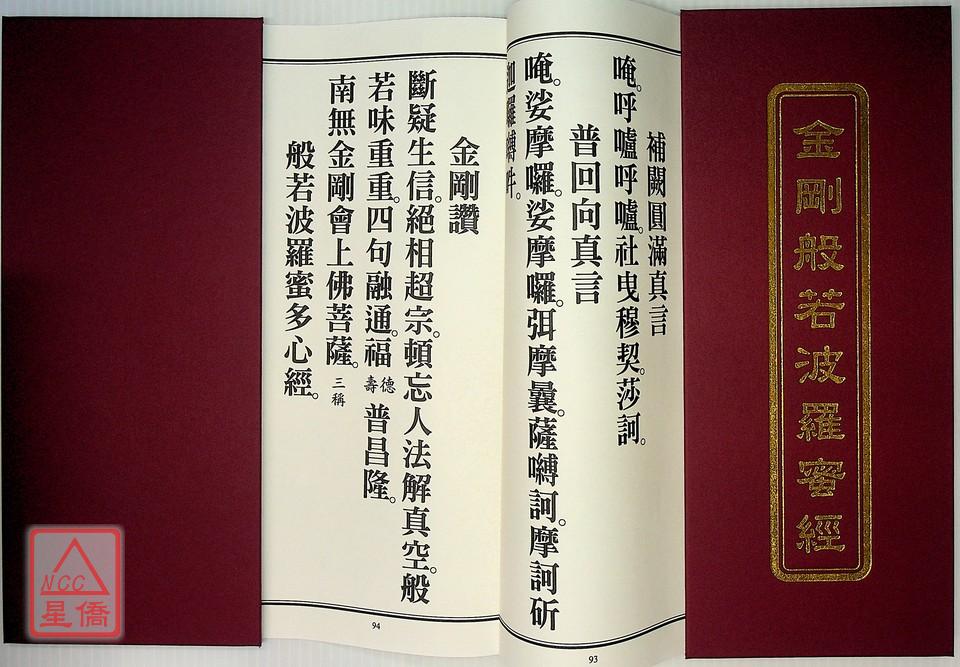 金剛般若波羅蜜經
補闕圓滿真言
唵。呼嚧呼嚧。社曳穆契。莎訶。
普回向真言
唵。娑摩囉。娑摩囉。弭摩曩。薩嚩訶。摩訶斫
迦囉嚩吽。
93
金剛讚
斷疑生信。絕相超宗。頓忘人法解真空。般
若味重重。四句融通。福德壽普昌隆。
南無金剛會上佛菩薩。三稱
般若波羅蜜多心經。
94
NCC
星僑